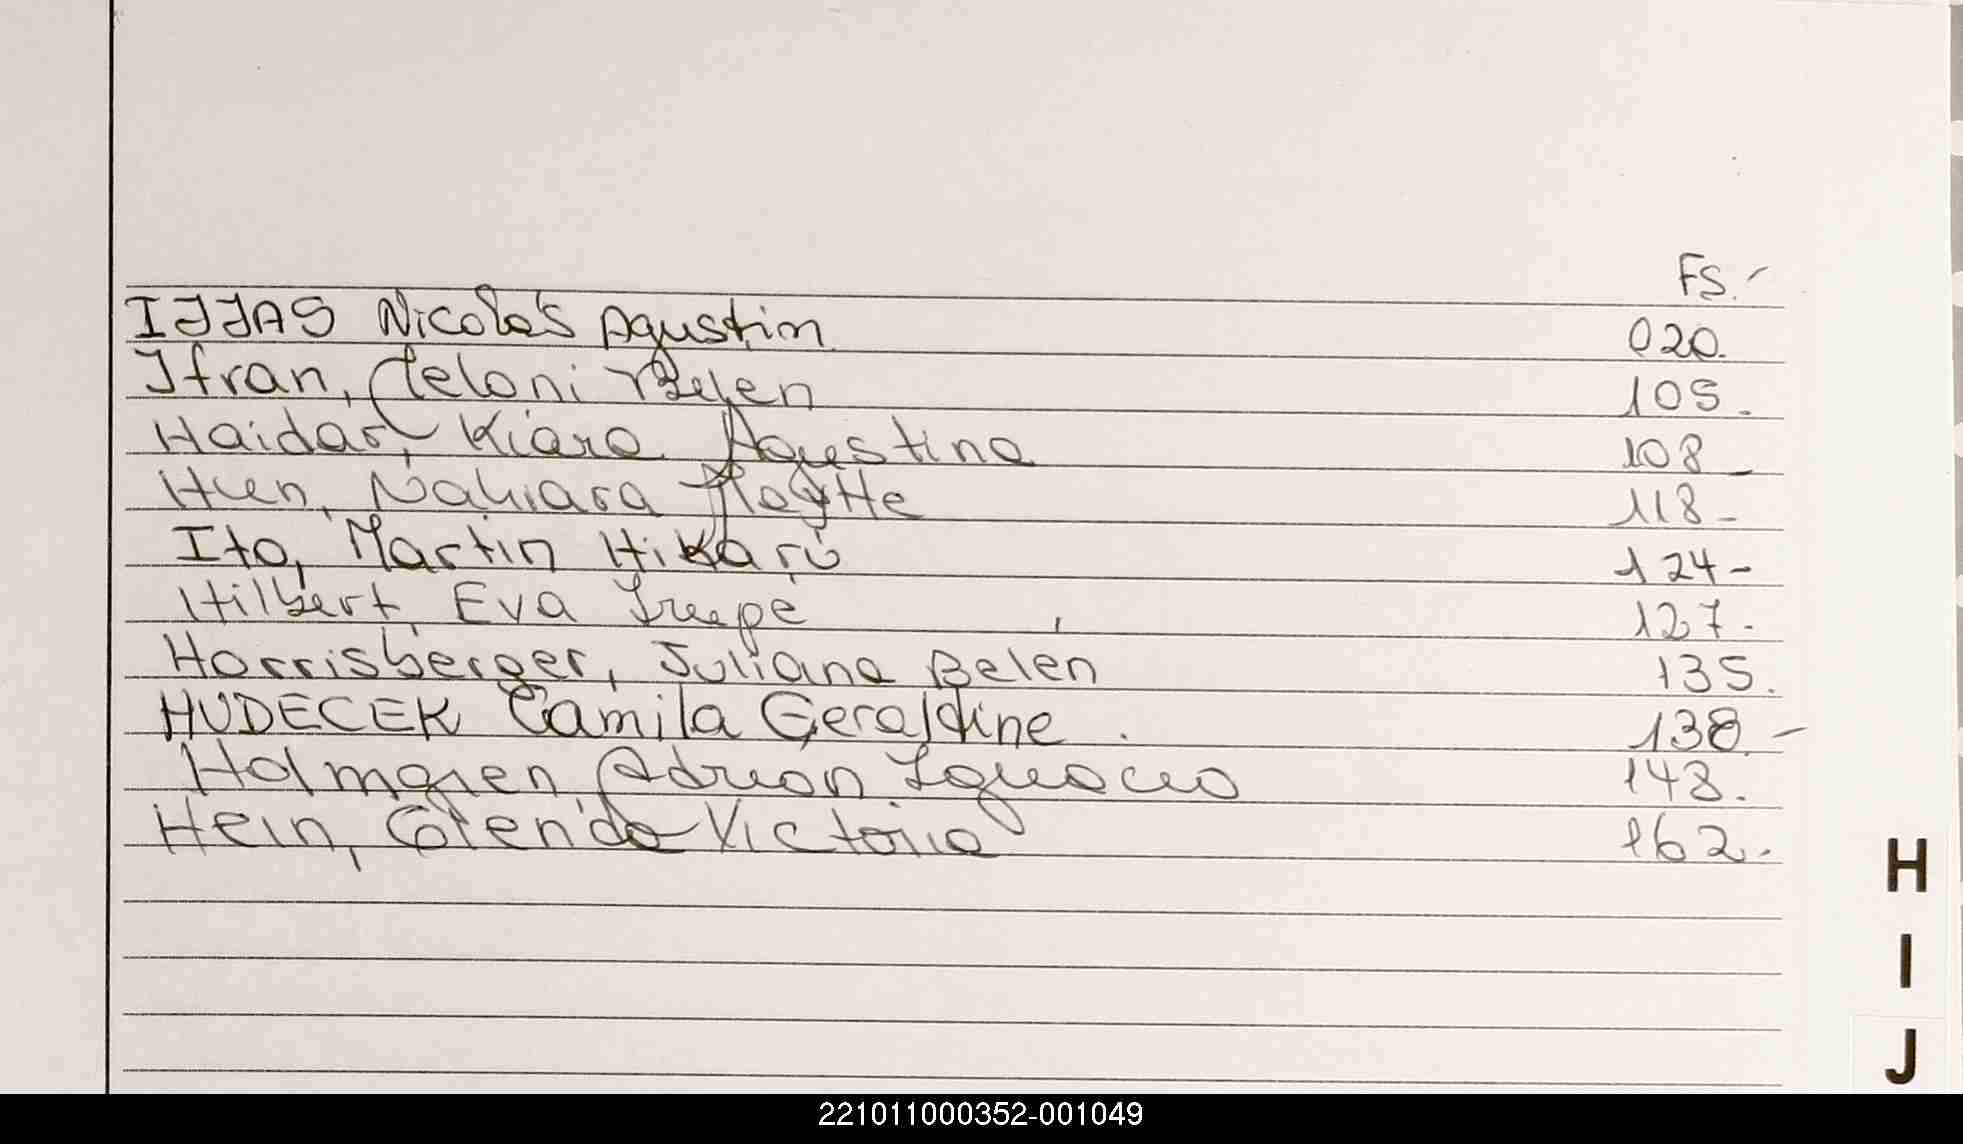 FS.
IJJAS Nicolás Agustin 020.
Ifran, Meloni Belen 105.
Haidar, Kiara Agustina 108
Huen, Nahiara 118-
Ito, Martin Hikaru 124-
Hilbert, Eva 127.
Horrisberger, Juliana Belen 135.
HUDECEK Camila Geraldine. 138.-
Holmgren, Adrian Ignacio 148.
Hein, Glenda Victoria 162.-
H
I
J
221011000352-001049